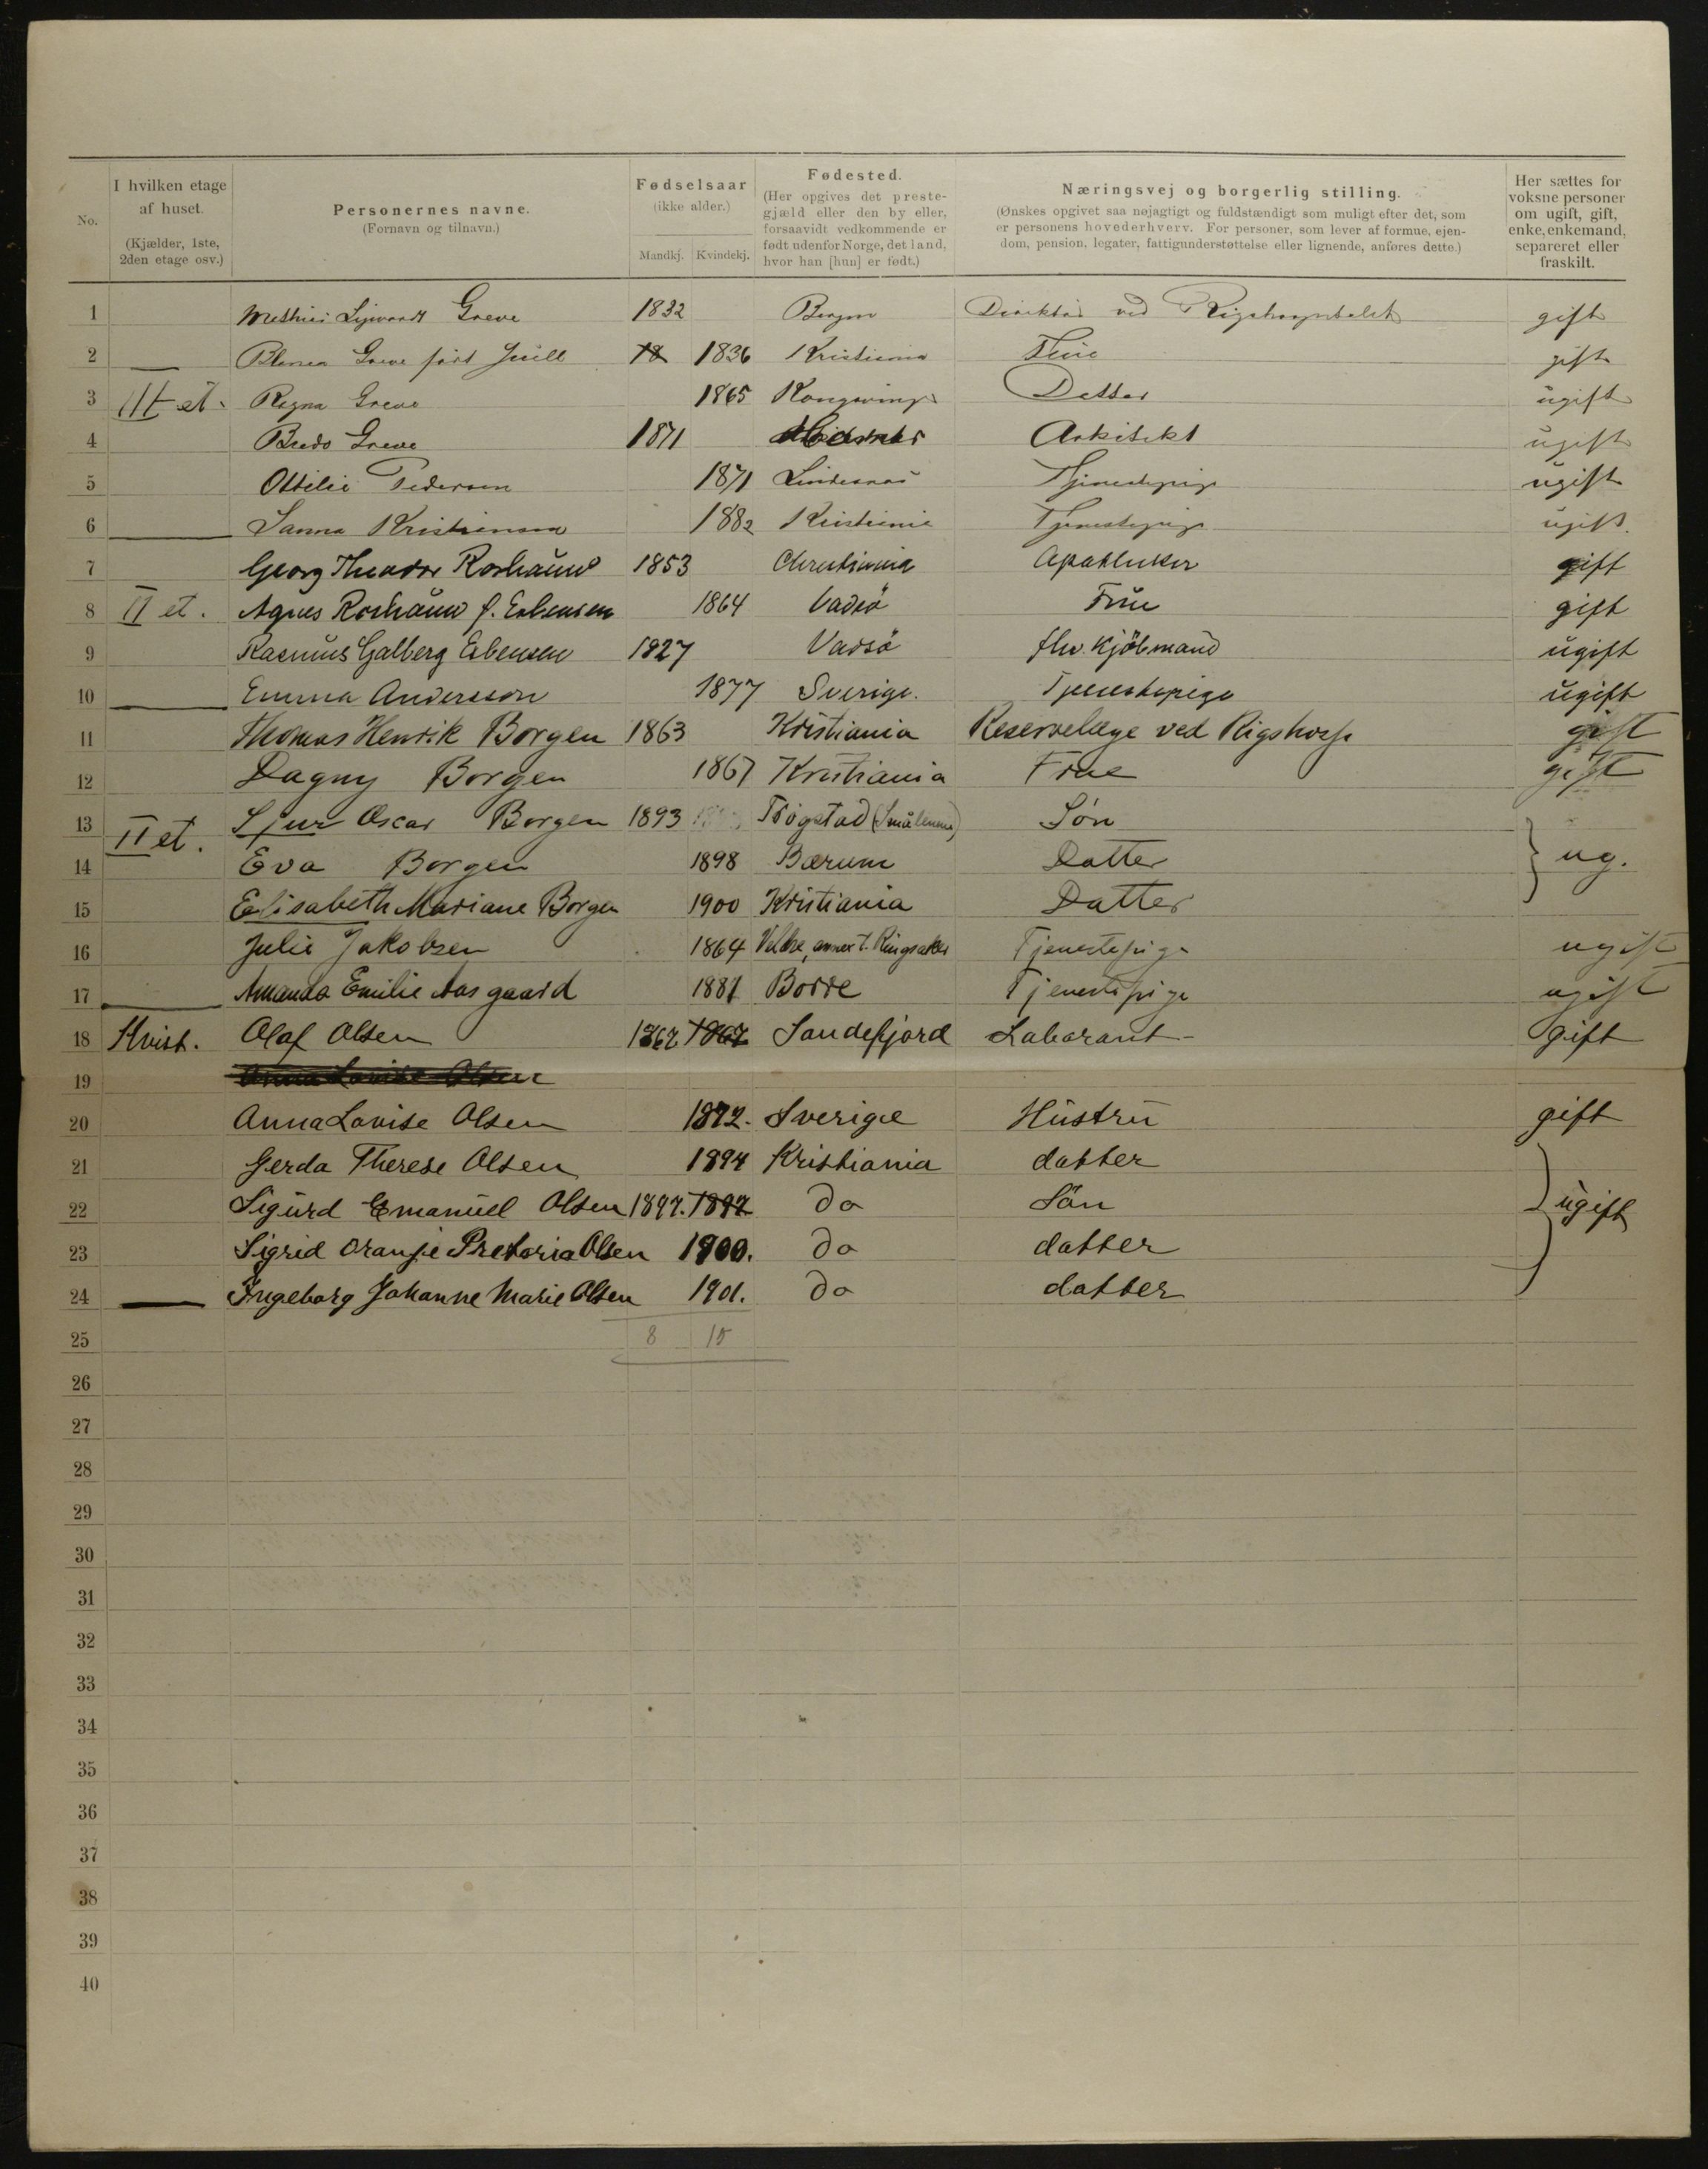 No. I hvilken etage af huset. (Kjælder, 1ste, 2den etage osv.) Personernes navne. (Fornavn og tilnavn.) Fødselsaar (ikke alder.) Mandkj. Kvindekj. Fødested. (Her opgives det prestegjæld eller den by eller, forsaavidt vedkommende er født udenfor Norge, det land, hvor han [hun] er født.) Næringsvej og borgerlig stilling. (Ønskes opgivet saa nøjagtigt og fuldstændigt som muligt efter det, som er personens hovederhverv. For personer, som lever af formue, ejendom, pension, legater, fattigunderstøttelse eller lignende, anføres dette.) Her sættes for voksne personer om ugift, gift, enke, enkemand, separeret eller fraskilt.
1 Greve 1832 Bergen Direktør ved Rigshospitalet gift
2 Greve født Juell 18 1836 Kristiania Frue gift
3 III et. Ragna Greve 1865 Kongsvinger Datter ugift
4 Bredo Greve 1871 Arkitekt ugift
5 Ottilie Pedersen 1871 Lindesnæs Tjenestepige ugift
6 Sanna Kristiansen 1882 Kristiania Tjenestepige ugift.
7 Georg Theodor Roshauw 1853 Christiania Apotheker gift
8 II et. Agnes Roshauw f. Esbensen 1864 Vadsö Frue gift
9 Rasmus Galberg Esbensen 1827 Vadsö fhv. Kjöbmand ugift
10 Emma Andersson 1877 Sverige. Tjenestepige ugift
11 Thomas Henrik Borgen 1863 Kristiania Reservelæge ved Rigshosp gift
12 Dagny Borgen 1867 Kristiania Frue gift
13 II et. Sjur Oscar Borgen 1893 Trøgstad (Smålenene) Søn
14 Eva Borgen 1898 Bærum Datter ug.
15 Elisabeth Mariane Borgen 1900 Kristiania Datter
16 Julie Jakobsen 1864 annex t. Ringsaker Tjenestepige ugift
17 Amanda Emilie Aasgaard 1881 Borre Tjenestepige ugift
18 Kvist. Olaf Olsen 1867 1867 Sandefjord Laborant - gift
19 Anna Lovise Olsen
20 Anna Lovise Olsen 1872. Sverige Hüstrü gift
21 Gerda Therese Olsen 1894 Kristiania datter
22 Sigürd Emanuel Olsen 1897. 1897 do Sön ügift
23 Sigrid Oranje Pretoria Olsen 1900. do datter
24 Ingeborg Johanne Marie Olsen 1901. do datter
25 8 15
26
27
28
29
30
31
32
33
34
35
36
37
38
39
40